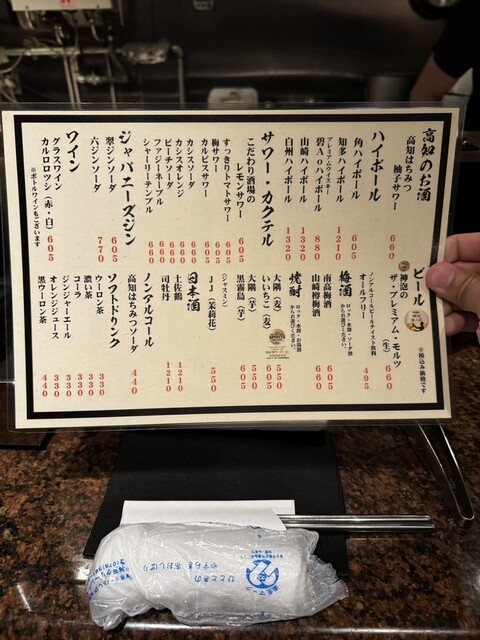 高知のお酒
高知はちみつ
柚子サワー 660
ハイボール
角ハイボール 605
知多ハイボール 1210
プレミアムウイスキー
碧Aoハイボール 880
山崎ハイボール 1320
白州ハイボール 1320
サワー・カクテル
こだわり酒場の
レモンサワー 605
すっきりトマトサワー 605
梅サワー 605
カルピスサワー 605
カシスソーダ 605
カシスオレンジ 660
ピーチソーダ 605
ファジーネーブル 660
シャーリーテンプル 660
ジャパニーズジン
翠ジンソーダ 605
六ジンソーダ 770
ワイン
グラスワイン
カルロロッシ(赤・白) 605
※ボトルワインもございます
ビール
※税込み価格です
神泡の
ザ・プレミアム・モルツ(生) 660
ノンアルコールビールテイスト飲料
オールフリー 495
梅酒
ロック・水割・ソーダ割
からお選びください。
南高梅酒 605
山崎樽梅酒 660
焼酎
ロック・水割・お湯割
からお選びください。
大隅(麦) 550
いいちこ(麦) 605
大隅(芋) 605
黒霧島(芋) 605
(ジャスミン)
JJ(茉莉花) 550
日本酒
土佐鶴 1210
司牡丹 1210
ノンアルコール
高知はちみつソーダ 440
ソフトドリンク
ウーロン茶 330
濃い茶 330
コーラ 330
ジンジャーエール 330
オレンジジュース 440
黒ウーロン茶 440
ひとときの
やすらぎ 布おしぼり